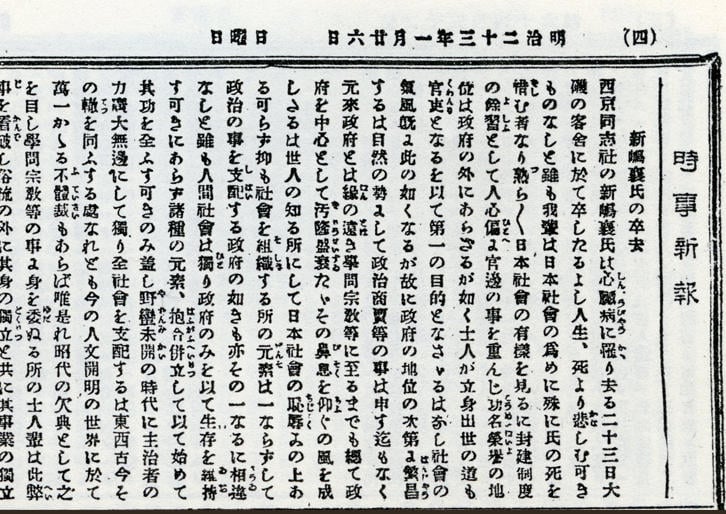 (四) 明治二十三年一月廿六日 日曜日
時事新報
新嶋襄氏の卒去
西京同志社の新嶋襄氏は心臓病に罹り去る二十三日大
磯の客舎に於て卒したるよし人生、死より悲しむ可き
ものなしと雖も我輩は日本社會の爲めに殊に氏の死を
惜む者なり熟ら〱日本社會の有樣を見るに封建制度
の餘習として人心偏に官邊の事を重んじ功名榮譽の地
位は政府の外にあらざるが如く士人が立身出世の道も
官吏となるを以て第一の目的となさゞるは莫し社會の
氣風既に此の如くなるが故に政府の地位の次第に繁昌
するは自然の勢にして政治商賣等の事は申す迄もなく
元來政府とは縁の遠き學問宗教等に至るまでも總て政
府を中心として汚隆盛衰たゞその鼻息を仰ぐの風を成
しゝるは世人の知る所にして日本社會の恥辱みの上あ
る可らず抑も社會を組織する所の元素は一ならずして
政治の事を支配する政府の如きも亦その一なるに相違
なしと雖も人間社會は獨り政府のみを以て生存を維持
す可きにあらず諸種の元素、抱合併立して以て始めて
其功を全ふす可きのみ蓋し野蠻未開の時代に主治者の
力廣大無邊にして獨り全社會を支配するは東西古今そ
の轍を同ふする處なれども今の人文開明の世界に於て
萬一かゝる不體裁もあらば唯是れ昭代の欠典として之
を目し學問宗教等の事に身を委ぬる所の士人輩は此弊
事を看破し俗流の外に其身の獨立と共に其事業の獨立